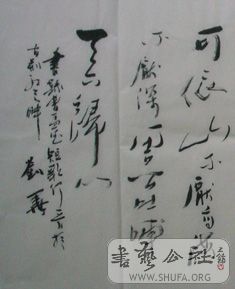 可依山不厭高海
不厭深周公吐哺
天下歸心
書魏曹孟德短歌行一首於
之畔
書藝公社
WWW.SHUFA.ORG